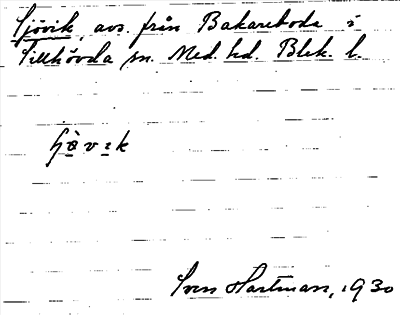 Sjövik, avs. från Bakareboda i
Tillhövda sn. Med. hd. Blek. l.
Sven Hartman, 1930